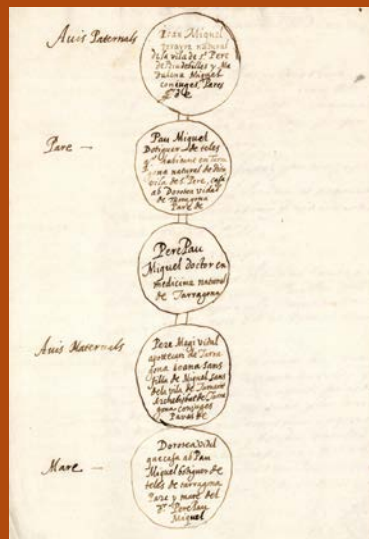 Avis Paternals
Joan Miquel
natural
de la vila de St. Pere
de Riudebitlles y Ma
dalena Miquel
conjuges, Pares
de
Pare —
Pau Miquel
Botiguer de teles
habitant en Tarra
gona natural de dita
vila de St. Pere, casà
ab Dorotea Vidal
de Tarragona
Pare de
Pere Pau
Miquel doctor en
medicina natural
de Tarragona
Avis Maternals
Pere Magi Vidal
apotecari de Tarra
gona Joana Sans
filla de Miquel Sans
de la vila de
Archebisbat de Tarra
gona conjuges
Pares de
Mare —
Dorotea Vidal
que casà ab Pau
Miquel botiguer de
teles de tarragona
Pare y mare del
Dr. Pere Pau
Miquel